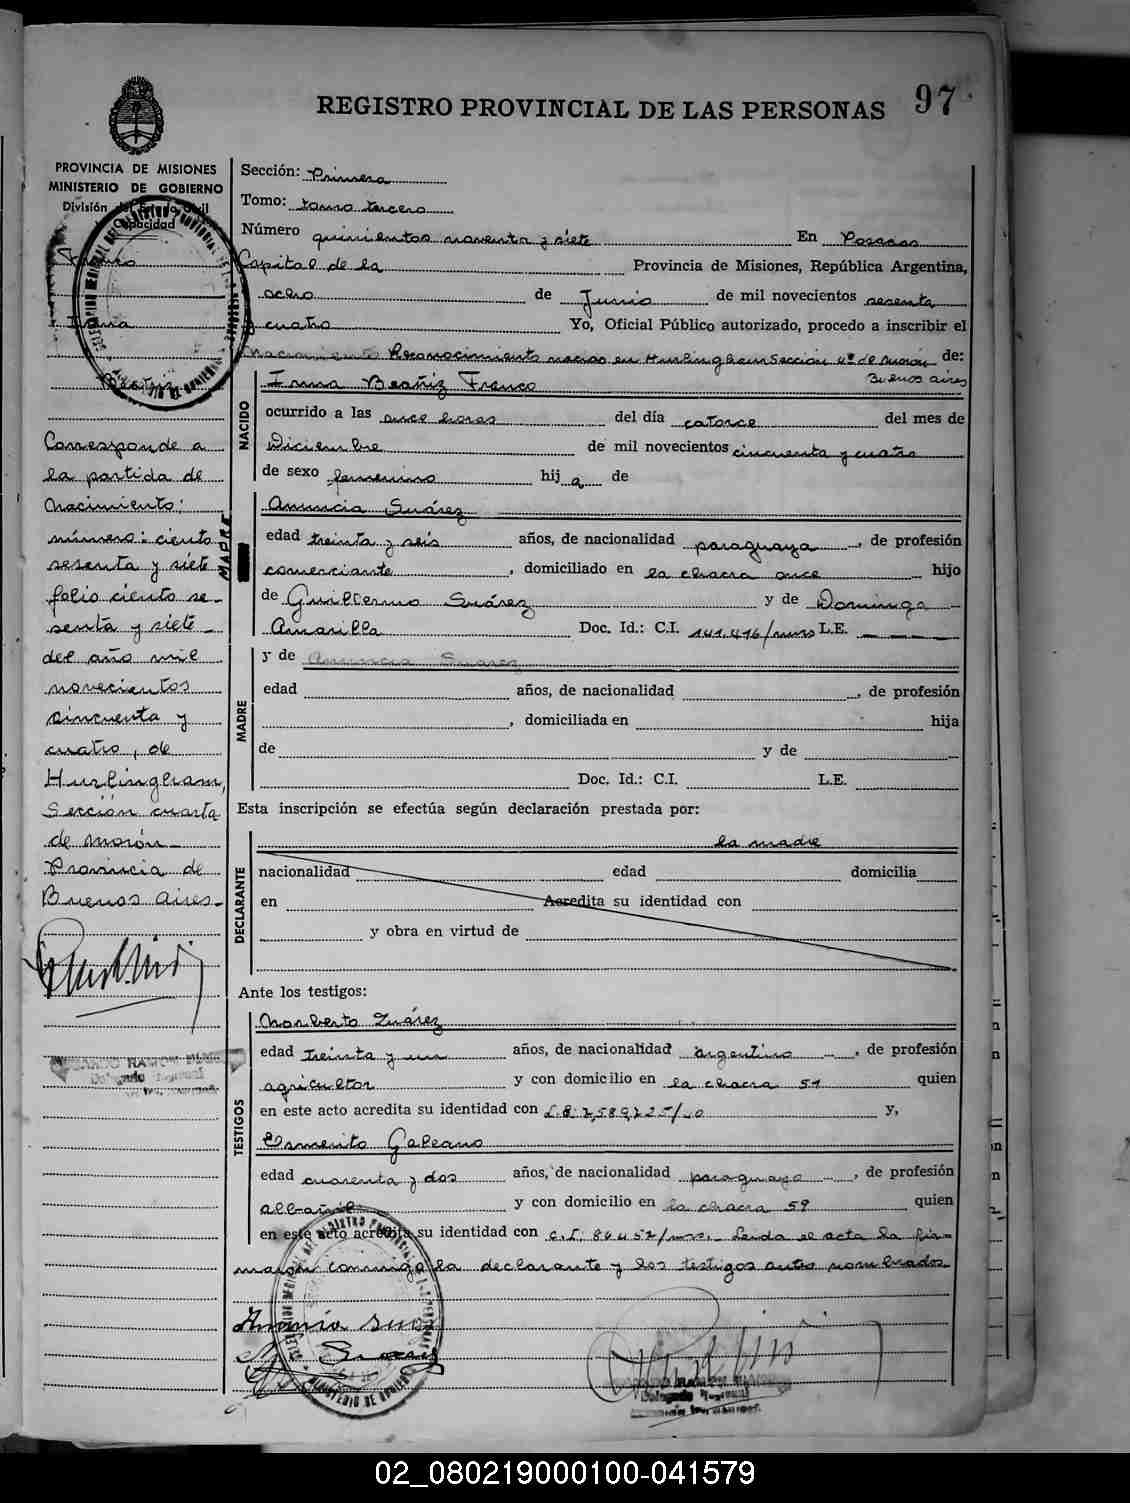 97
REGISTRO PROVINCIAL DE LAS PERSONAS
PROVINCIA DE MISIONES
MINISTERIO DE GOBIERNO
División del Estado Civil
Capacidad
Franco
Irma
Beatriz
Corresponde a
la partida de
Nacimiento:
número: ciento
sesenta y siete
folio ciento se-
senta y siete
del año mil
novecientos
cincuenta y
cuatro, de
Hurlingham,
Sección cuarta
de Morón
Provincia de
Buenos Aires-
Sección: Primera
Tomo: tomo tercero
Número quinientos noventa y siete En Posadas
Capital de la Provincia de Misiones, República Argentina,
ocho de Junio de mil novecientos sesenta
y cuatro Yo, Oficial Público autorizado, procedo a inscribir el
Nacimiento Reconocimiento nacido en Hurlingham Sección 4ª de Morón de:
Buenos aires
NACIDO
Irma Beatriz Franco
ocurrido a las once horas del día catorce del mes de
Diciembre de mil novecientos cincuenta y cuatro
de sexo femenino hija de
MADRE
Anuncia Suárez
edad treinta y seis años, de nacionalidad paraguaya, de profesión
comerciante, domiciliado en la chacra once hijo
de Guillermo Suárez y de Dominga
Amarilla Doc. Id.: C.I. 141.416/mns L.E.
MADRE
y de Anuncia Suarez
edad años, de nacionalidad , de profesión
, domiciliada en hija
de y de
Doc. Id.: C.I. L.E.
Esta inscripción se efectúa según declaración prestada por:
DECLARANTE
la madre
nacionalidad edad domicilia
en Acredita su identidad con
y obra en virtud de
Ante los testigos:
TESTIGOS
Norberto Suárez
edad treinta y un años, de nacionalidad argentino, de profesión
agricultor y con domicilio en la chacra 51 quien
en este acto acredita su identidad con y,
Esmerito Galeano
edad cuarenta y dos años, de nacionalidad paraguaya, de profesión
albañil y con domicilio en la chacra 59 quien
en este acto acredita su identidad con C.I. 86457/mns.- Leída el acta la fir-
maron conmigo la declarante y los testigos antes nombrados
02_080219000100-041579